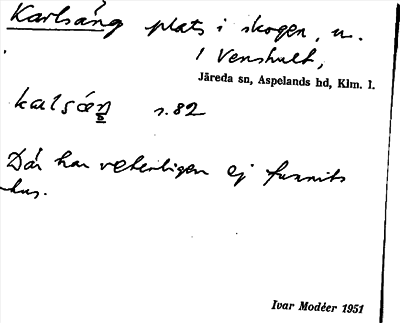 Karlsäng plats i skogen, u.
/ Venshult,
Järeda sn, Aspelands hd, Klm. l.
kalsäŋ s. 82
Där har veterligen ej funnits
hus.
Ivar Modéer 1951